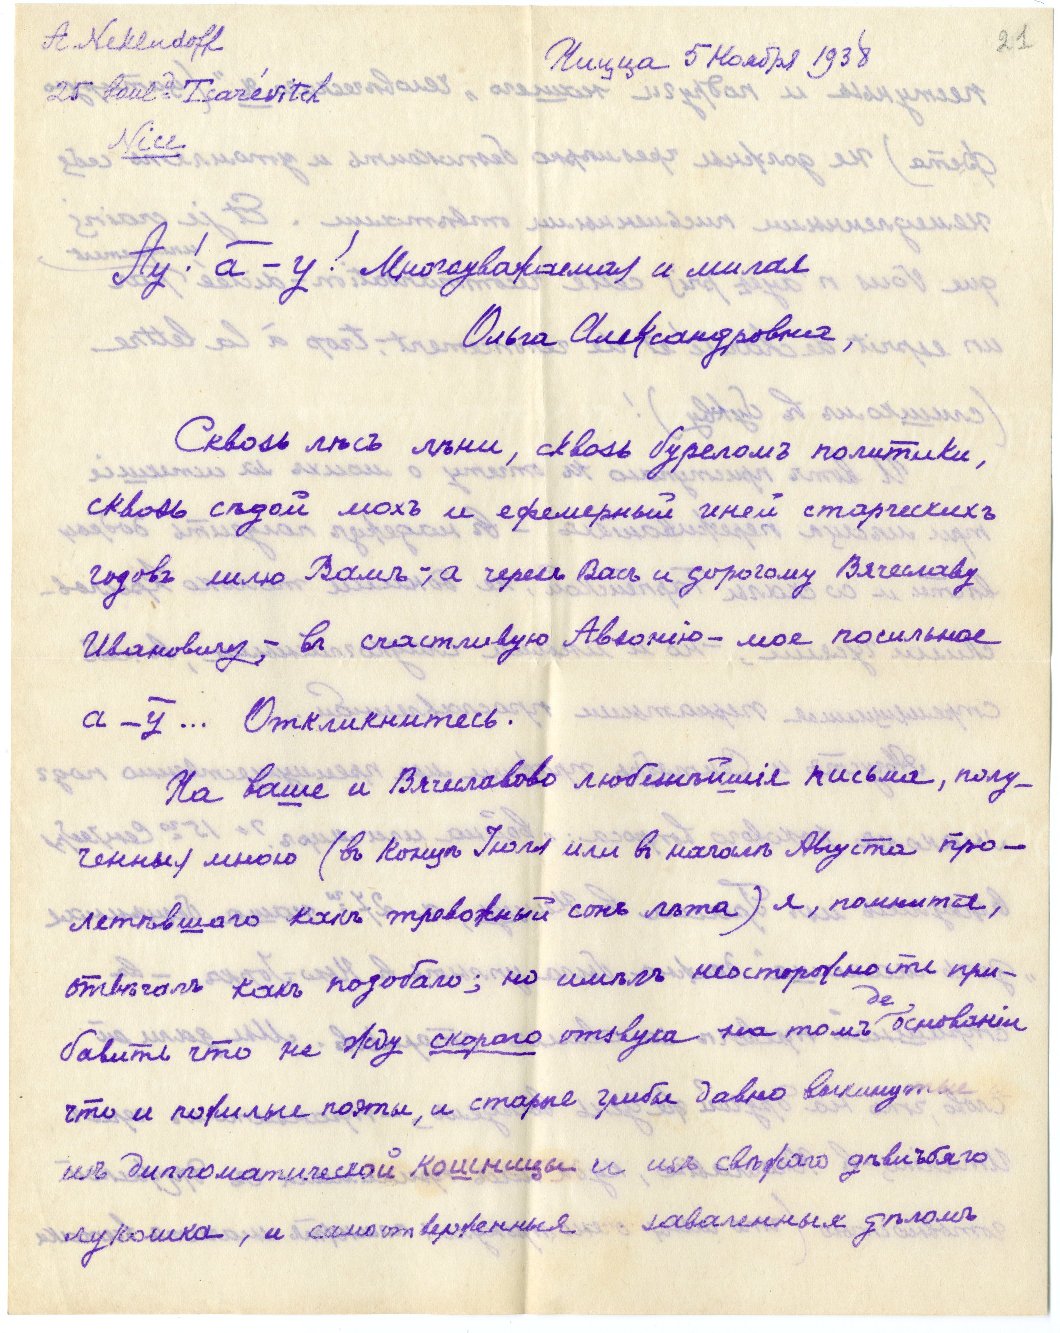 A Nekludoff
25 boul-d Tsarévitch
Nice
Ницца 5 Ноября 1938
21
Ау! а – у! Многоуважаемая и милая
Ольга Александровна,
Сквозь лѣсъ лѣни, сквозь буреломъ политики,
сквозь сѣдой мохъ и ефемерный иней старческихъ
годовъ шлю Вамъ –, а черезъ Васъ и дорогому Вячеславу
Ивановичу, – въ счастливую Авзонію – мое посильное
а – у ... Откликнитесь.
На ваше и Вячеславово любезнѣйшія письма, полу-
ченныя мною (въ концѣ Іюля или въ началѣ Августа про-
летѣвшаго какъ тревожный сонъ лѣта) я, помнится,
отвѣчалъ какъ подобало; но имѣлъ неосторожности при-
бавить что не жду скораго отзвука на томъ де основаніи
что и пожилые поэты, и старые грибы давно выкинутые
изъ дипломатической кошницы и изъ свѣжаго дѣвичьяго
лукошка, и самоотверженныя заваленныя дѣломъ